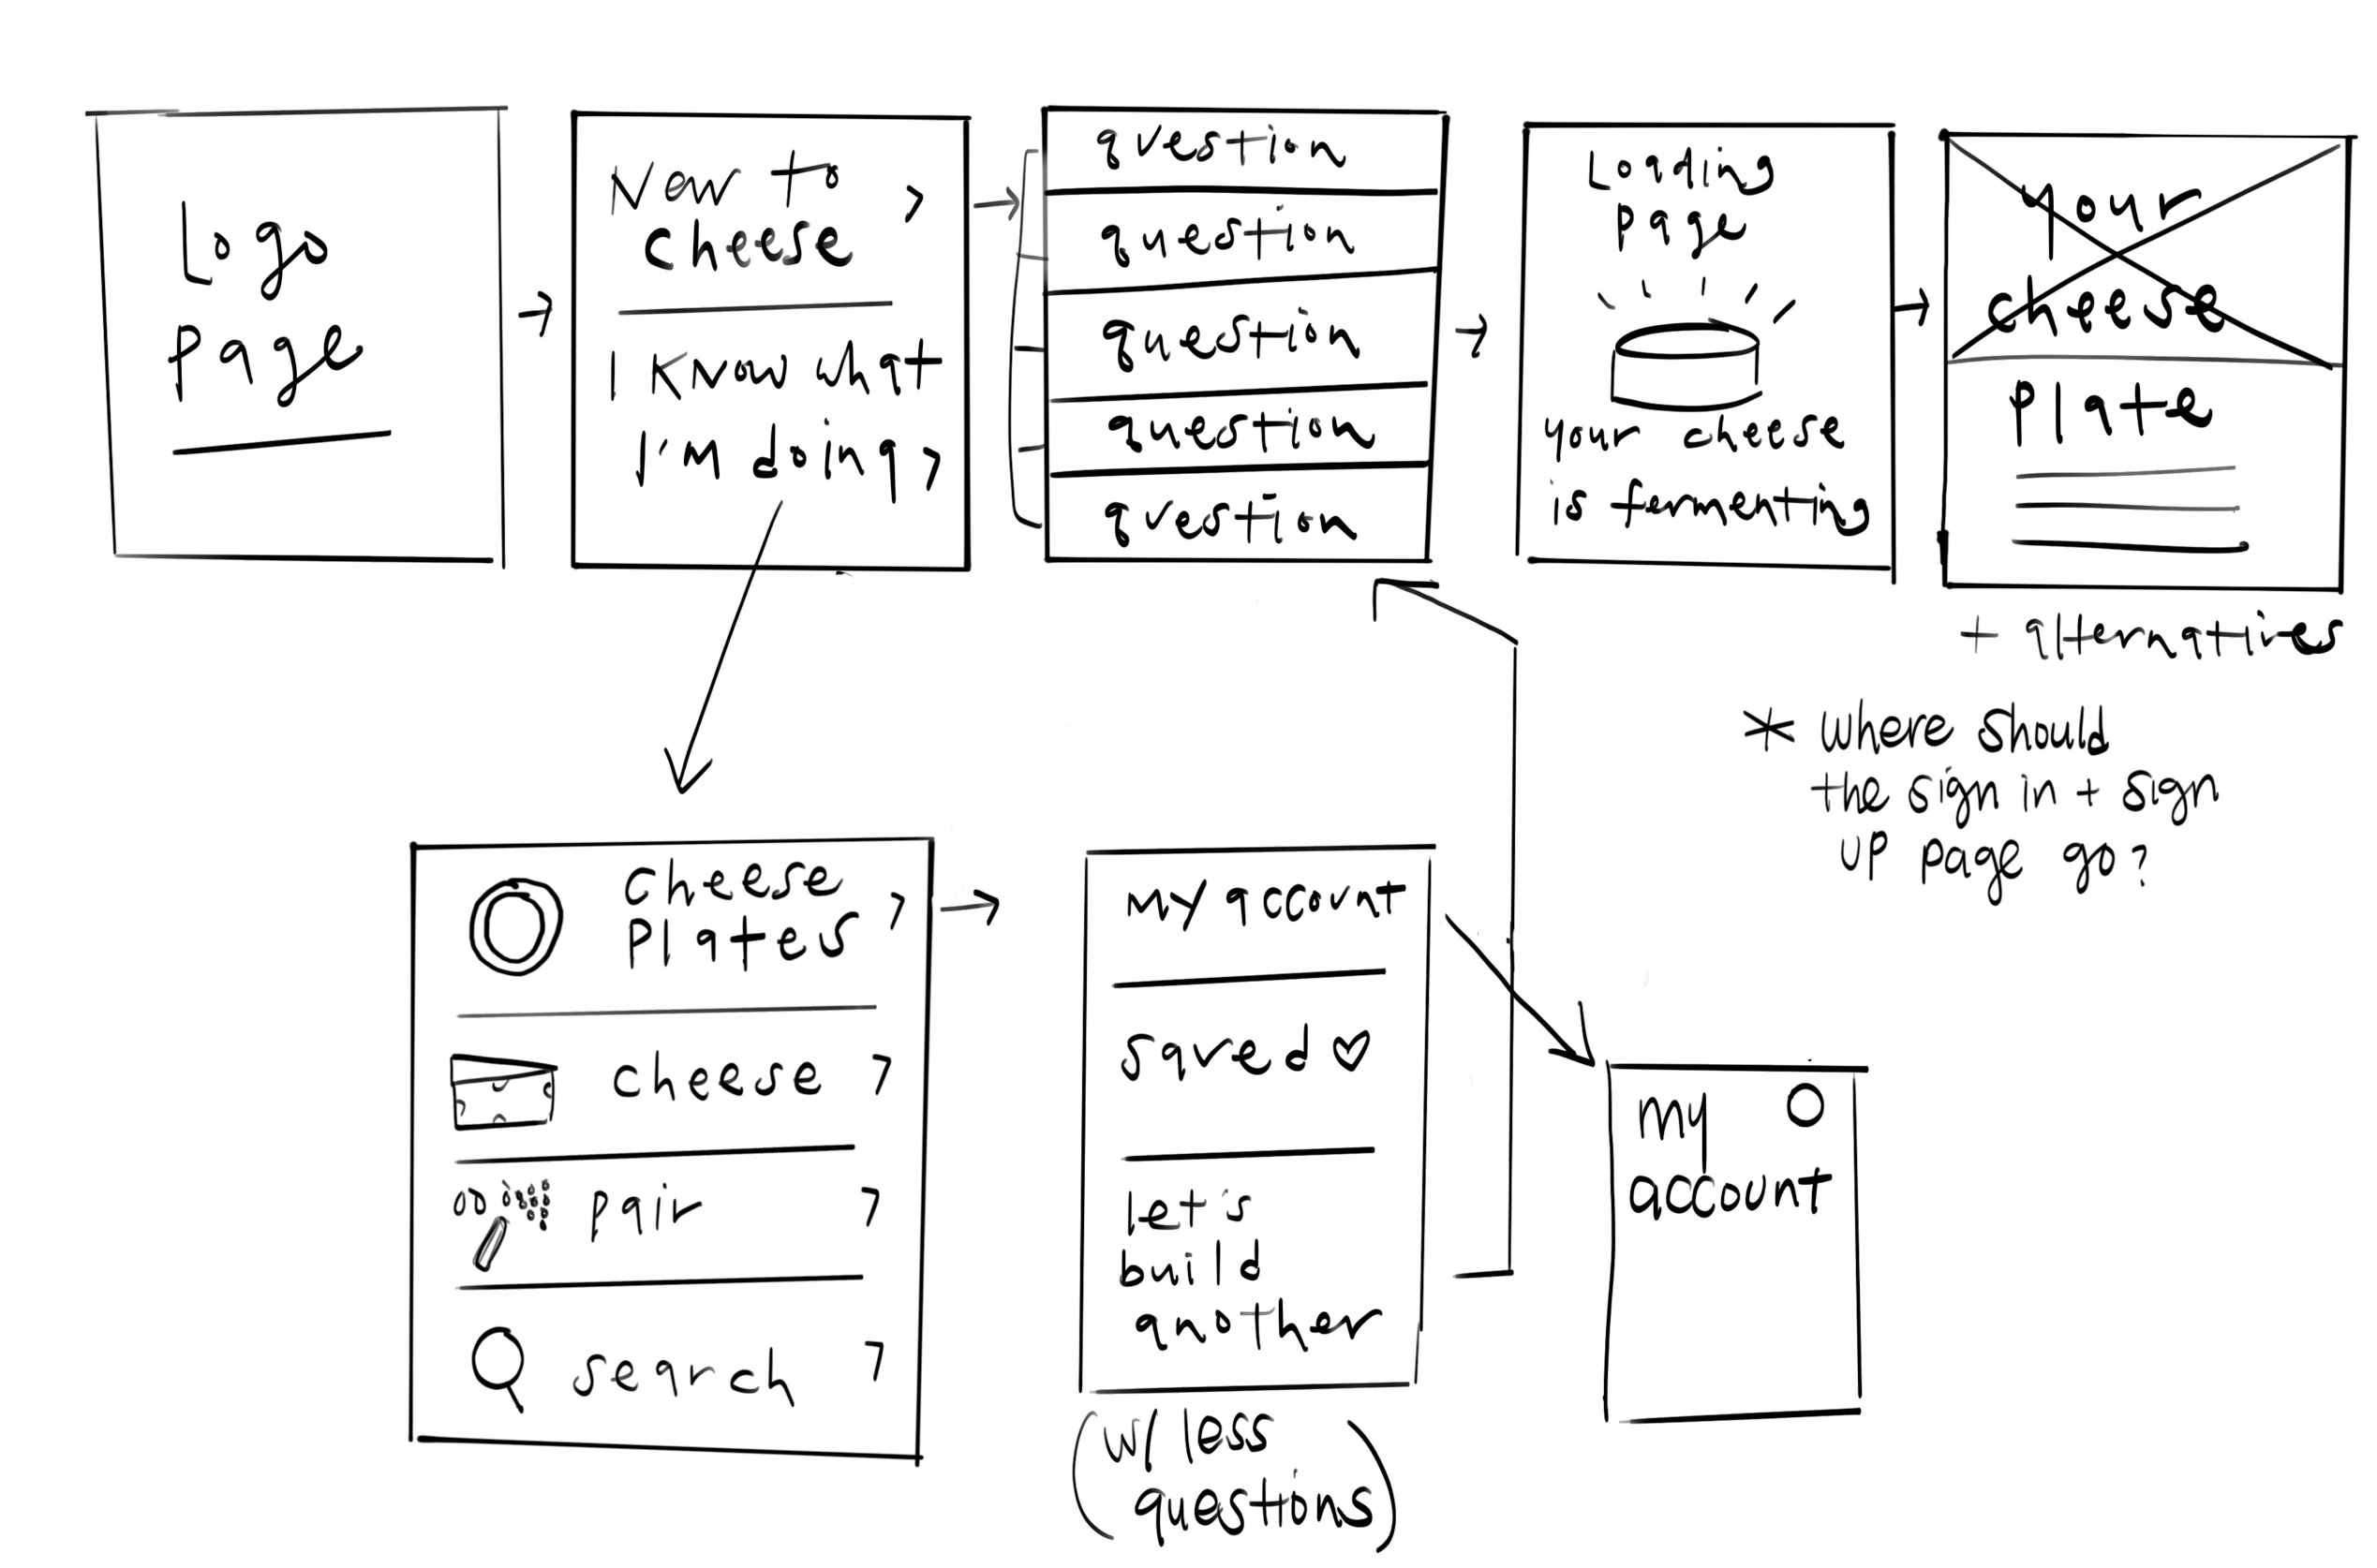 Logo
page
New to
cheese
I know what
I'm doing
question
question
question
question
question
Loading
page
your cheese
is fermenting
your
cheese
plate
+ alternatives
* where should
the sign in + sign
up page go?
cheese
plates
cheese
pair
search
my account
saved
let's
build
another
(w/ less
questions)
my
account